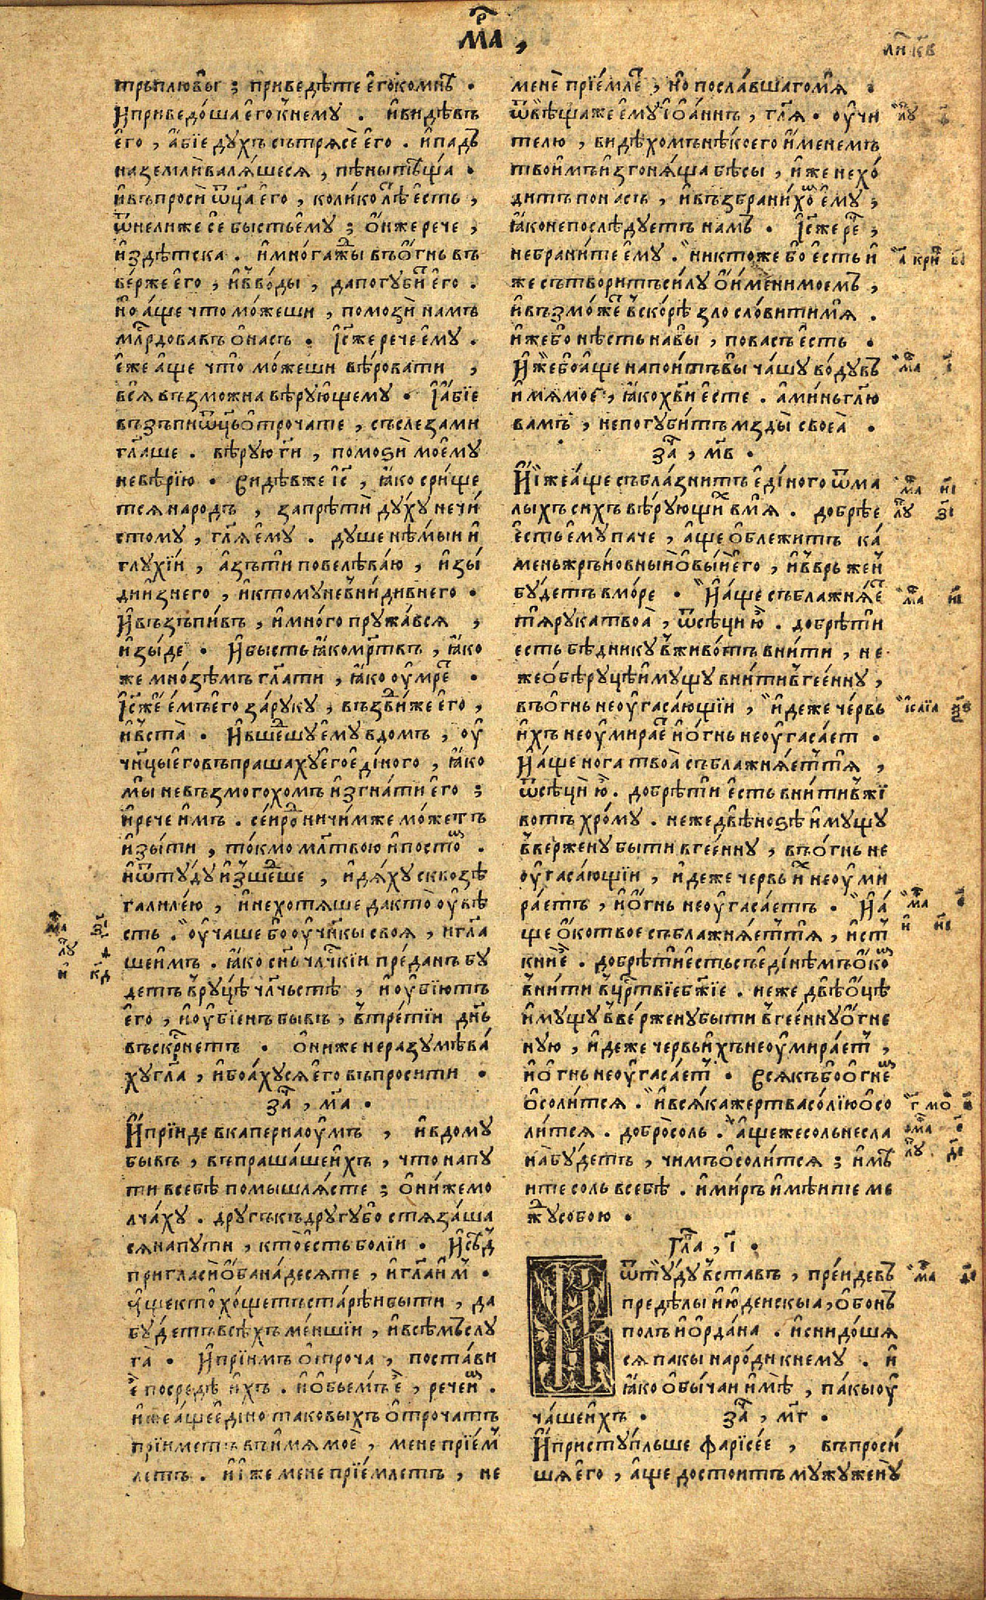 мр҃а ,
тръплю вы ; приведѣте его комнѣ .
И приведоша его кнему . и видѣвъ
его , абїе духъ сътрясе его . и падъ
наземли валяшеся , пѣны тѣща .
и въпроси ѿца его , колико лѣ есть ,
ѿнелиже се бысть ему ; онже рече ,
издѣтска . и многажы въогнь въ
верже его , и вводы , да погуби его .
но аще что можеши , помози намъ
млрдовавъ онасъ . Іс҃же рече ему .
еже аще что можеши вѣровати ,
вся възможна вѣрующему . І абїе
възъпи ѿць отрочате , сълезами
глаше . вѣрую ги , помози моему
невѣрїю . видѣвже іс҃ , яко срище
тся народъ , запрѣти духу нечи
стому , гля ему . душе нѣмый и
глухїи , азъ ти повелѣваю , изы
ди изнего , и ктому невниди внего .
И възъпивъ , и много пружався ,
изыде . И бысть яко мртвъ , яко
же мнозѣмъ глати , яко умре .
Іс҃же емъ его заруку , въздвиже его ,
и вста . И вшешу ему вдомъ , оу
чицы его въпрашаху его единого , яко
мы невъзмогохомъ изгнати его ;
и рече имъ . сеи ро ничимже можетъ
изыти , токмо млтвою и посто .
и ѿтуду изшеше , идяху сквозѣ
галилею , и нехотяше да кто оувѣ
сть . оучаше бо оучикы своя , и гла
ше имъ . яко снъ члчкїи преданъ бу
детъ вруцѣ члчьстѣ , и оубїютъ
его , и оубїенъ бывъ , втретїи днь
въскрнетъ . они же неразумѣва
ху гла , и боахуся его въпросити .
за҃ , м҃а .
И прїиде вкапернаоумъ , и вдому
бывъ , въпрашаше ихъ , что напу
ти всебѣ помышлясте ; они же мо
лчаху . другъ къ другу бо стязаша
ся напути , кто есть болїи . И сѣд
пригласи обанадесяте , и гла им .
Аще кто хощетъ старѣи быти , да
будетъ всѣхъ меншїи , и всѣмъ слу
га . И прїимъ отроча , постави
е посредѣ ихъ . и объемъ е , рече и .
иже аще едино таковыхъ отрочатъ
прїиметъ въимя мое , мене прїем
летъ . и иже мене прїемлетъ , не
мене прїемле , но пославшаго мя .
ѿвѣщаже ему іоаннъ , гля . оучи
телю , видѣхомъ нѣкоего именемъ
твоимъ изгоняща бѣсы , иже нехо
дитъ понасъ , и възбранихо ему ;
яко непослѣдуетъ намъ . Іс҃же ре ,
небраните ему . никтоже бо есть и
же сътворитъ силу оимени моемъ ,
и възможе вскорѣ зло словити мя .
иже бо нѣсть навы , по васъ есть .
Иже бо аще напоитъ вы чашу воды въ
имя мое , яко хви есте . аминь глю
вамъ , непогубитъ мзды своеа .
за҃ , м҃в .
И иже аще съблазнитъ единого ѿ ма
лыхъ сихъ вѣрующи вмя . добрѣе
есть ему паче , аще облежитъ ка
мень жръновный овыи его , и вврьжен
будетъ вморе . И аще съблажняе
тя рука твоа , ѿсѣци ю . добрѣ ти
есть бѣднику вживотъ внити , не
же обѣ руцѣ имущу внити вгеенну ,
въогнь неоугасающїи , идеже червь
ихъ неоумирае и огнь неоугасает .
И аще нога твоа съблажняеття ,
ѿсѣци ю . добрѣ ти есть внити вжї
вотъ хрому . неже двѣ нозѣ имущу
ввержену быти вгеенну , въогнь не
оугасающїи , идеже червь и неоуми
раетъ , и огнь неоугасаетъ . И а
ще око твое съблажняеття , ист
кни е . добрѣ ти есть съединѣмъ око
внити вцртвїе бжїе . неже двѣ оцѣ
имущу ввержену быти вгеенну огне
ную , идеже червь ихъ неоумирает ,
и огнь неоугасает . всякъ бо огне
осолится . и всяка жертва солїю осо
лится . добро соль . аще же соль несла
на будетъ , чимъ осолится ; имѣ
ите соль всебѣ . и миръ имѣите ме
жусобою .
гла , і҃ .
И ѿтуду вставъ , прейде въ
предѣлы июдеискыа , обонъ
полъ иордана . и снидоша
ся пакы народи кнему . и
яко обычаи имѣ , пакы оу
чаше ихъ . за҃ , м҃г .
И приступльше фарїсее , въпроси
шя его , аще достоитъ мужу жену